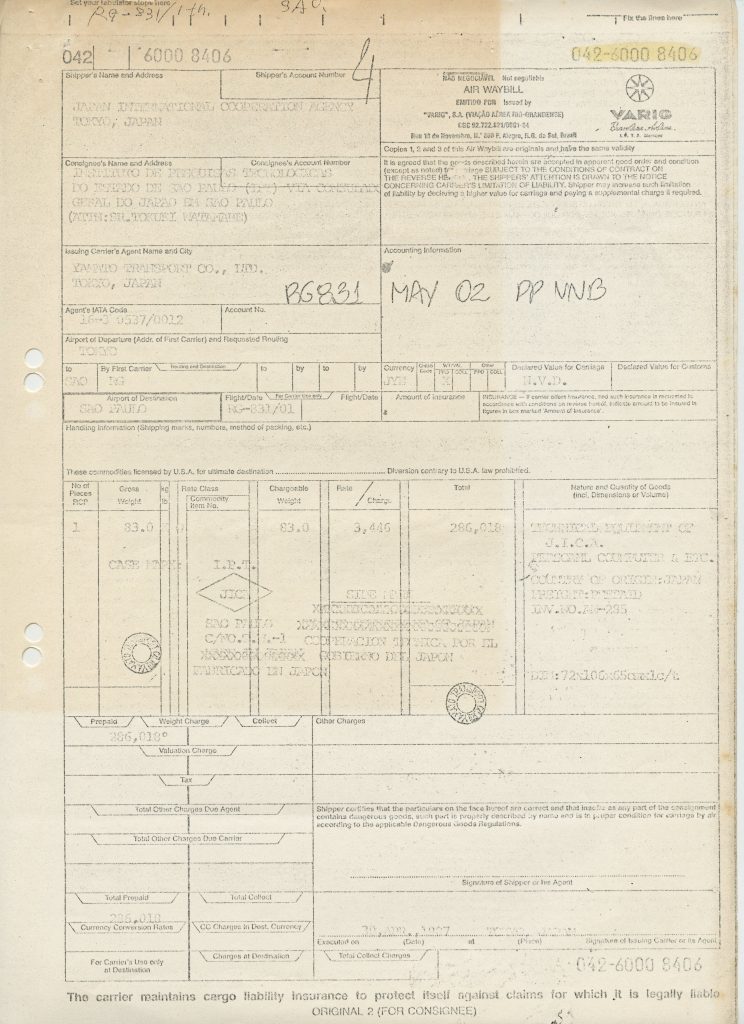 Set your tabulator stops here
RG-831/1th. SAO.
Fix the lines here
042 6000 8406
042-6000 8406
Shipper's Name and Address
Shipper's Account Number
4
JAPAN INTERNATIONAL COOPERATION AGENCY
TOKYO, JAPAN
NÃO NEGOCIÁVEL Not negotiable
AIR WAYBILL
EMITIDO POR Issued by
"VARIG", S.A. (VIAÇÃO AÉREA RIO-GRANDENSE)
VARIG
Copies 1, 2 and 3 of this Air Waybill are originals and have the same validity
Consignee's Name and Address
Consignee's Account Number
INSTITUTO DE PESQUISAS TECNOLOGICAS
DO ESTADO DE SAO PAULO (IPT) VIA CONSULADO
GERAL DO JAPAO EM SAO PAULO
(ATTN:SR.TOKUZI WATANABE)
It is agreed that the goods described herein are accepted in apparent good order and condition
(except as noted) for carriage SUBJECT TO THE CONDITIONS OF CONTRACT ON
THE REVERSE HEREOF. THE SHIPPER'S ATTENTION IS DRAWN TO THE NOTICE
CONCERNING CARRIER'S LIMITATION OF LIABILITY. Shipper may increase such limitation
of liability by declaring a higher value for carriage and paying a supplemental charge if required.
Issuing Carrier's Agent Name and City
Accounting Information
YAMATO TRANSPORT CO., LTD.
TOKYO, JAPAN
RG831 MAY 02 PP NNB
Agent's IATA Code
Account No.
16-3 0537/0012
Airport of Departure (Addr. of First Carrier) and Requested Routing
TOKYO
to
By First Carrier
Routing and Destination
to
by
to
by
Currency
Declared Value for Carriage
Declared Value for Customs
SAO
RG
JYN
X
N.V.D.
Airport of Destination
Flight/Date
For Carrier Use only
Flight/Date
Amount of Insurance
INSURANCE — If carrier offers insurance, and such insurance is requested in
accordance with conditions on reverse hereof, indicate amount to be insured in
figures in box marked 'Amount of Insurance'.
SAO PAULO
RG-831/01
Handling Information (Shipping marks, numbers, method of packing, etc.)
These commodities licensed by U.S.A. for ultimate destination
Diversion contrary to U.S.A. law prohibited.
No of Pieces RCP
Gross Weight
kg lb
Rate Class
Commodity Item No.
Chargeable Weight
Rate / Charge
Total
Nature and Quantity of Goods
(incl. Dimensions or Volume)
1
83.0
83.0
3,446
286,018
TECHNICAL EQUIPMENT OF
J.I.C.A.
PERSONAL COMPUTER & ETC.
CASE MARK: I.P.T.
COUNTRY OF ORIGIN:JAPAN
JICA
SIDE MARK
FREIGHT:PREPAID
SAO PAULO
C/NO.
COOPERACION TECNICA POR EL
GOBIERNO DEL JAPON
FABRICADO EN JAPON
DIM:72x106x65cmx1c/t
Prepaid
Weight Charge
Collect
Other Charges
286,018
Valuation Charge
Tax
Total Other Charges Due Agent
Shipper certifies that the particulars on the face hereof are correct and that insofar as any part of the consignment
contains dangerous goods, such part is properly described by name and is in proper condition for carriage by air
according to the applicable Dangerous Goods Regulations.
Total Other Charges Due Carrier
Signature of Shipper or his Agent
Total Prepaid
Total Collect
286,018
Currency Conversion Rates
CC Charges in Dest. Currency
Executed on
(Date)
at
(Place)
Signature of Issuing Carrier or its Agent
For Carrier's Use only
at Destination
Charges at Destination
Total Collect Charges
042-6000 8406
The carrier maintains cargo liability insurance to protect itself against claims for which it is legally liable
ORIGINAL 2 (FOR CONSIGNEE)